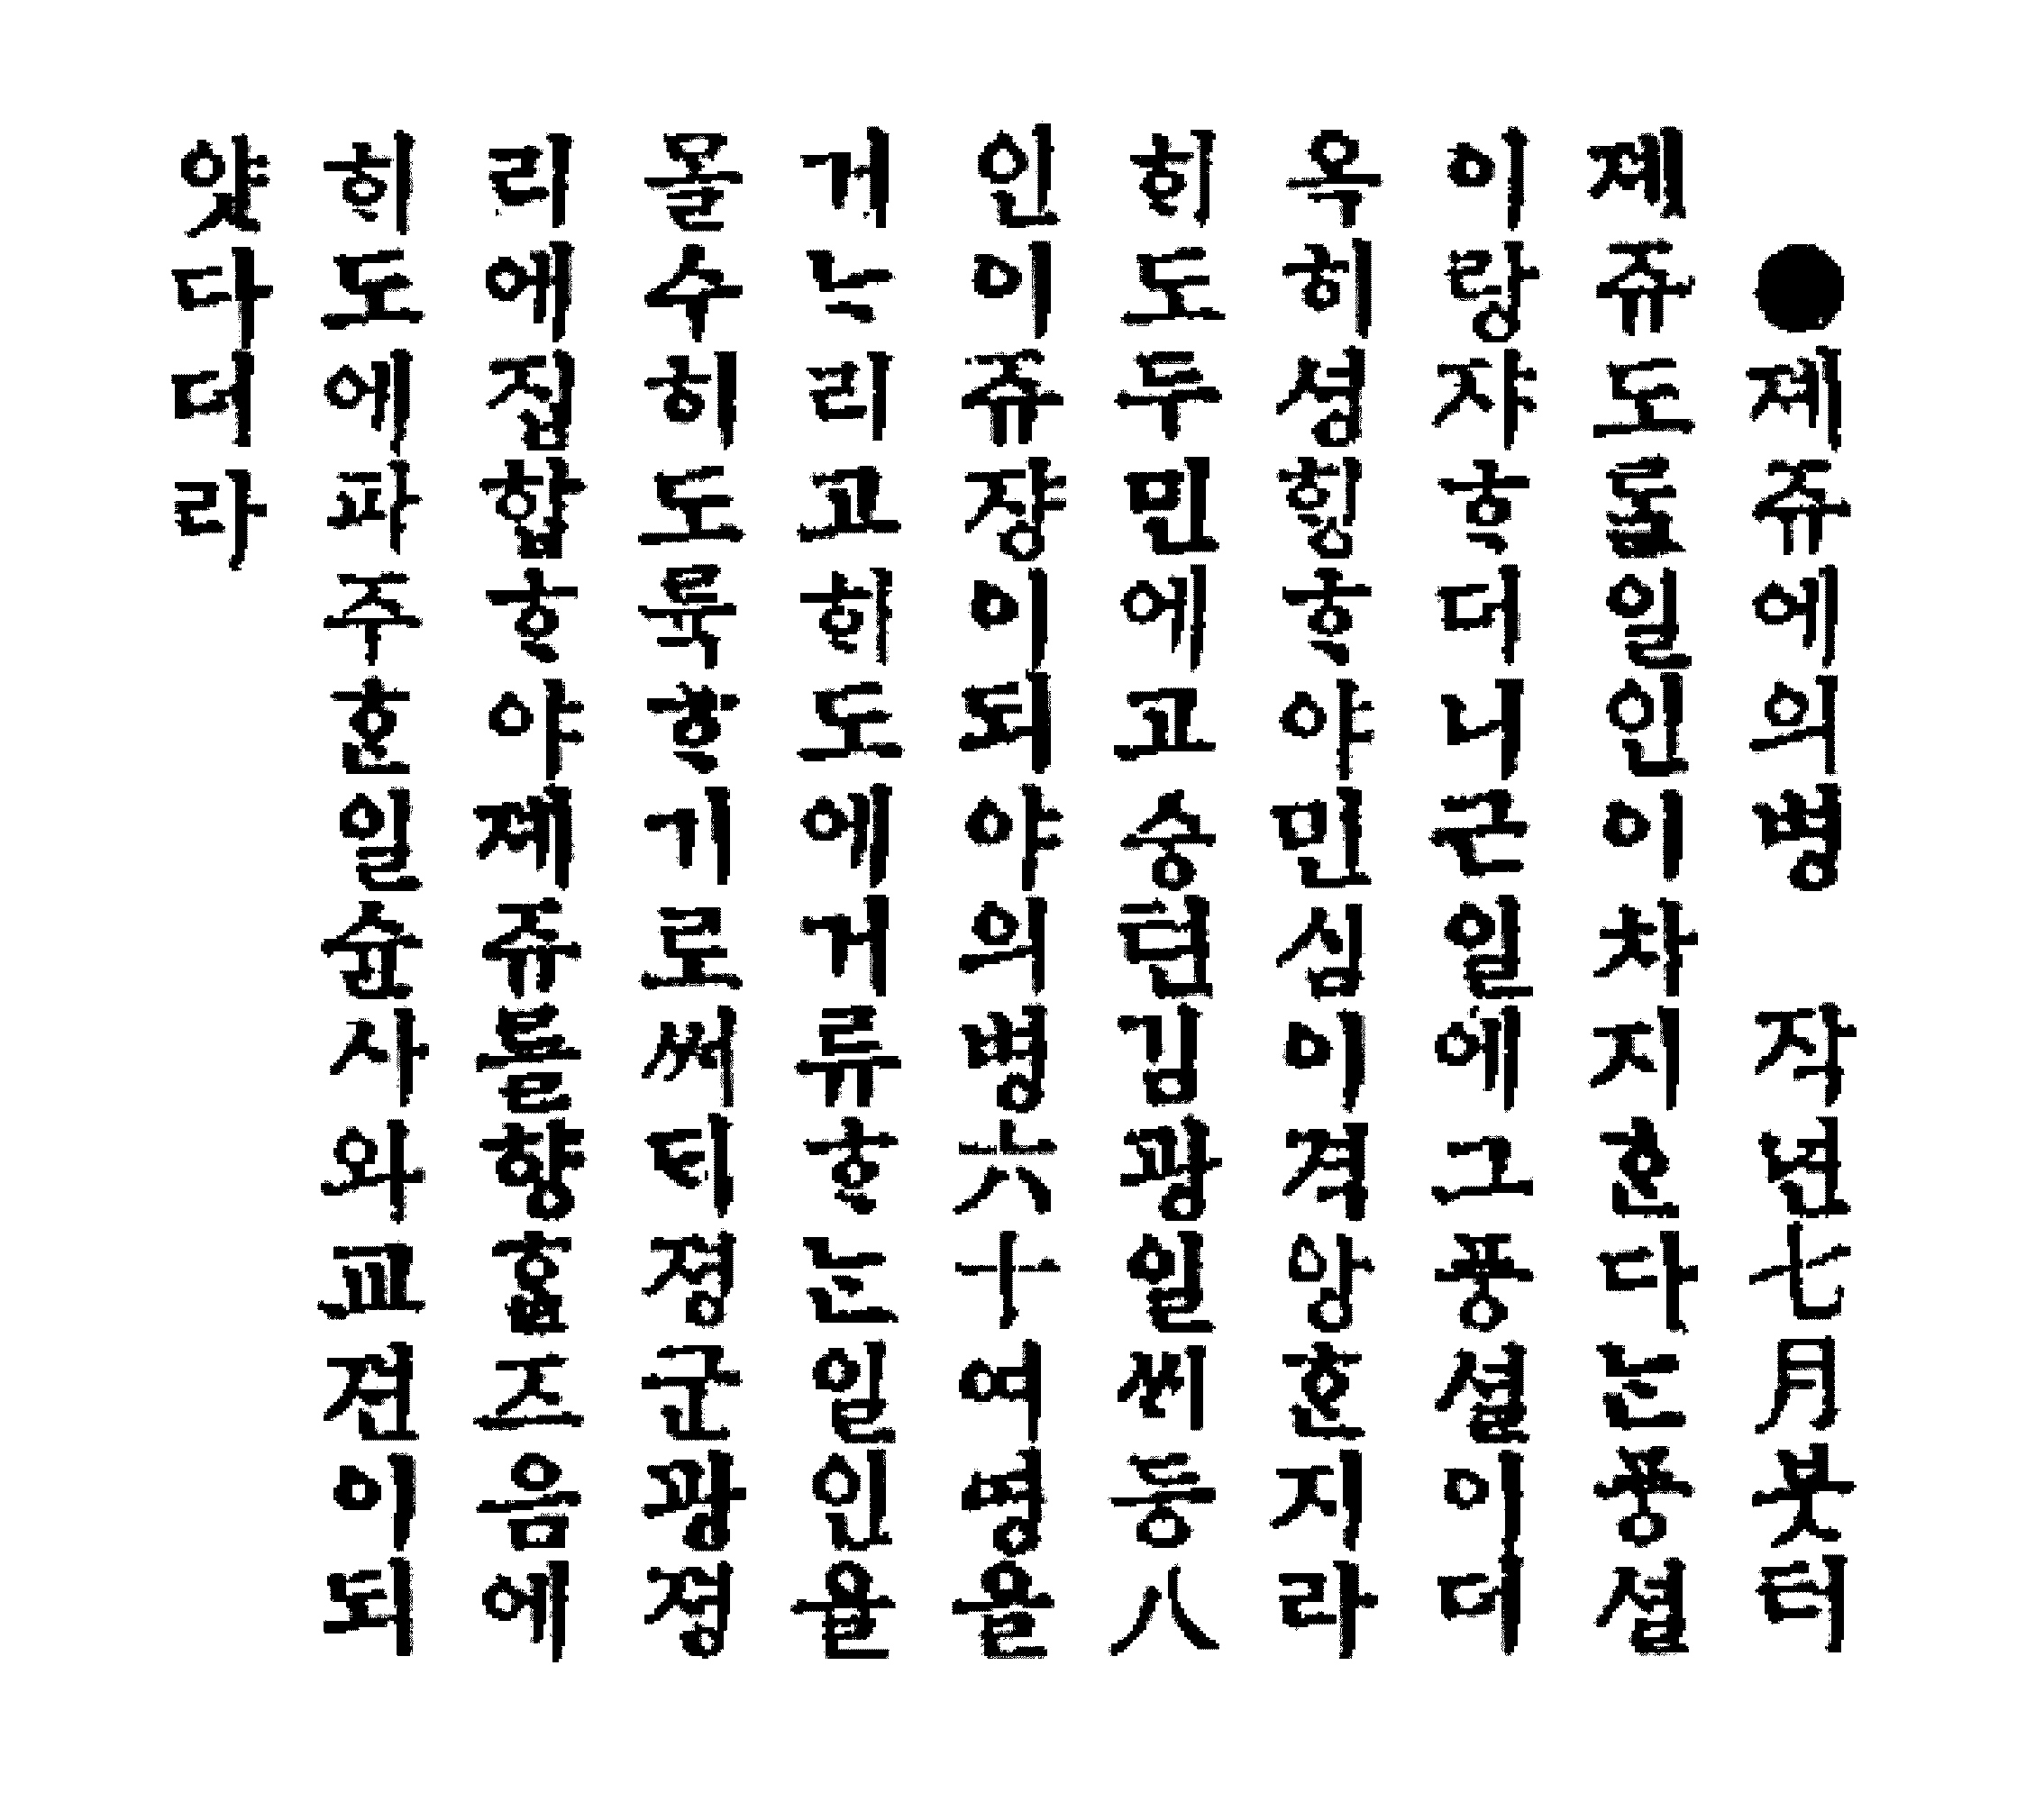 ●졔쥬에의병 작년七月붓터
졔쥬도ᄅᆞᆯ일인이차지ᄒᆞᆫ다ᄂᆞᆫ풍셜
이랑쟈ᄒᆞ더니근일에그풍셜이더
옥히셩ᄒᆡᆼᄒᆞ야민심이격앙ᄒᆞᆫ지라
ᄒᆡ도두민에고승텬김광일씨등八
인이쥬쟝이되야의병六十여명을
거ᄂᆞ리고ᄒᆡ도에거류ᄒᆞᄂᆞᆫ일인을
몰수히도륙ᄒᆞ기로써ᄃᆡ졍군광졍
리에집합ᄒᆞ야졔쥬를향ᄒᆞᆯ즈음에
ᄒᆡ도에파주ᄒᆞᆫ일슌사와교젼이되
얏다더라